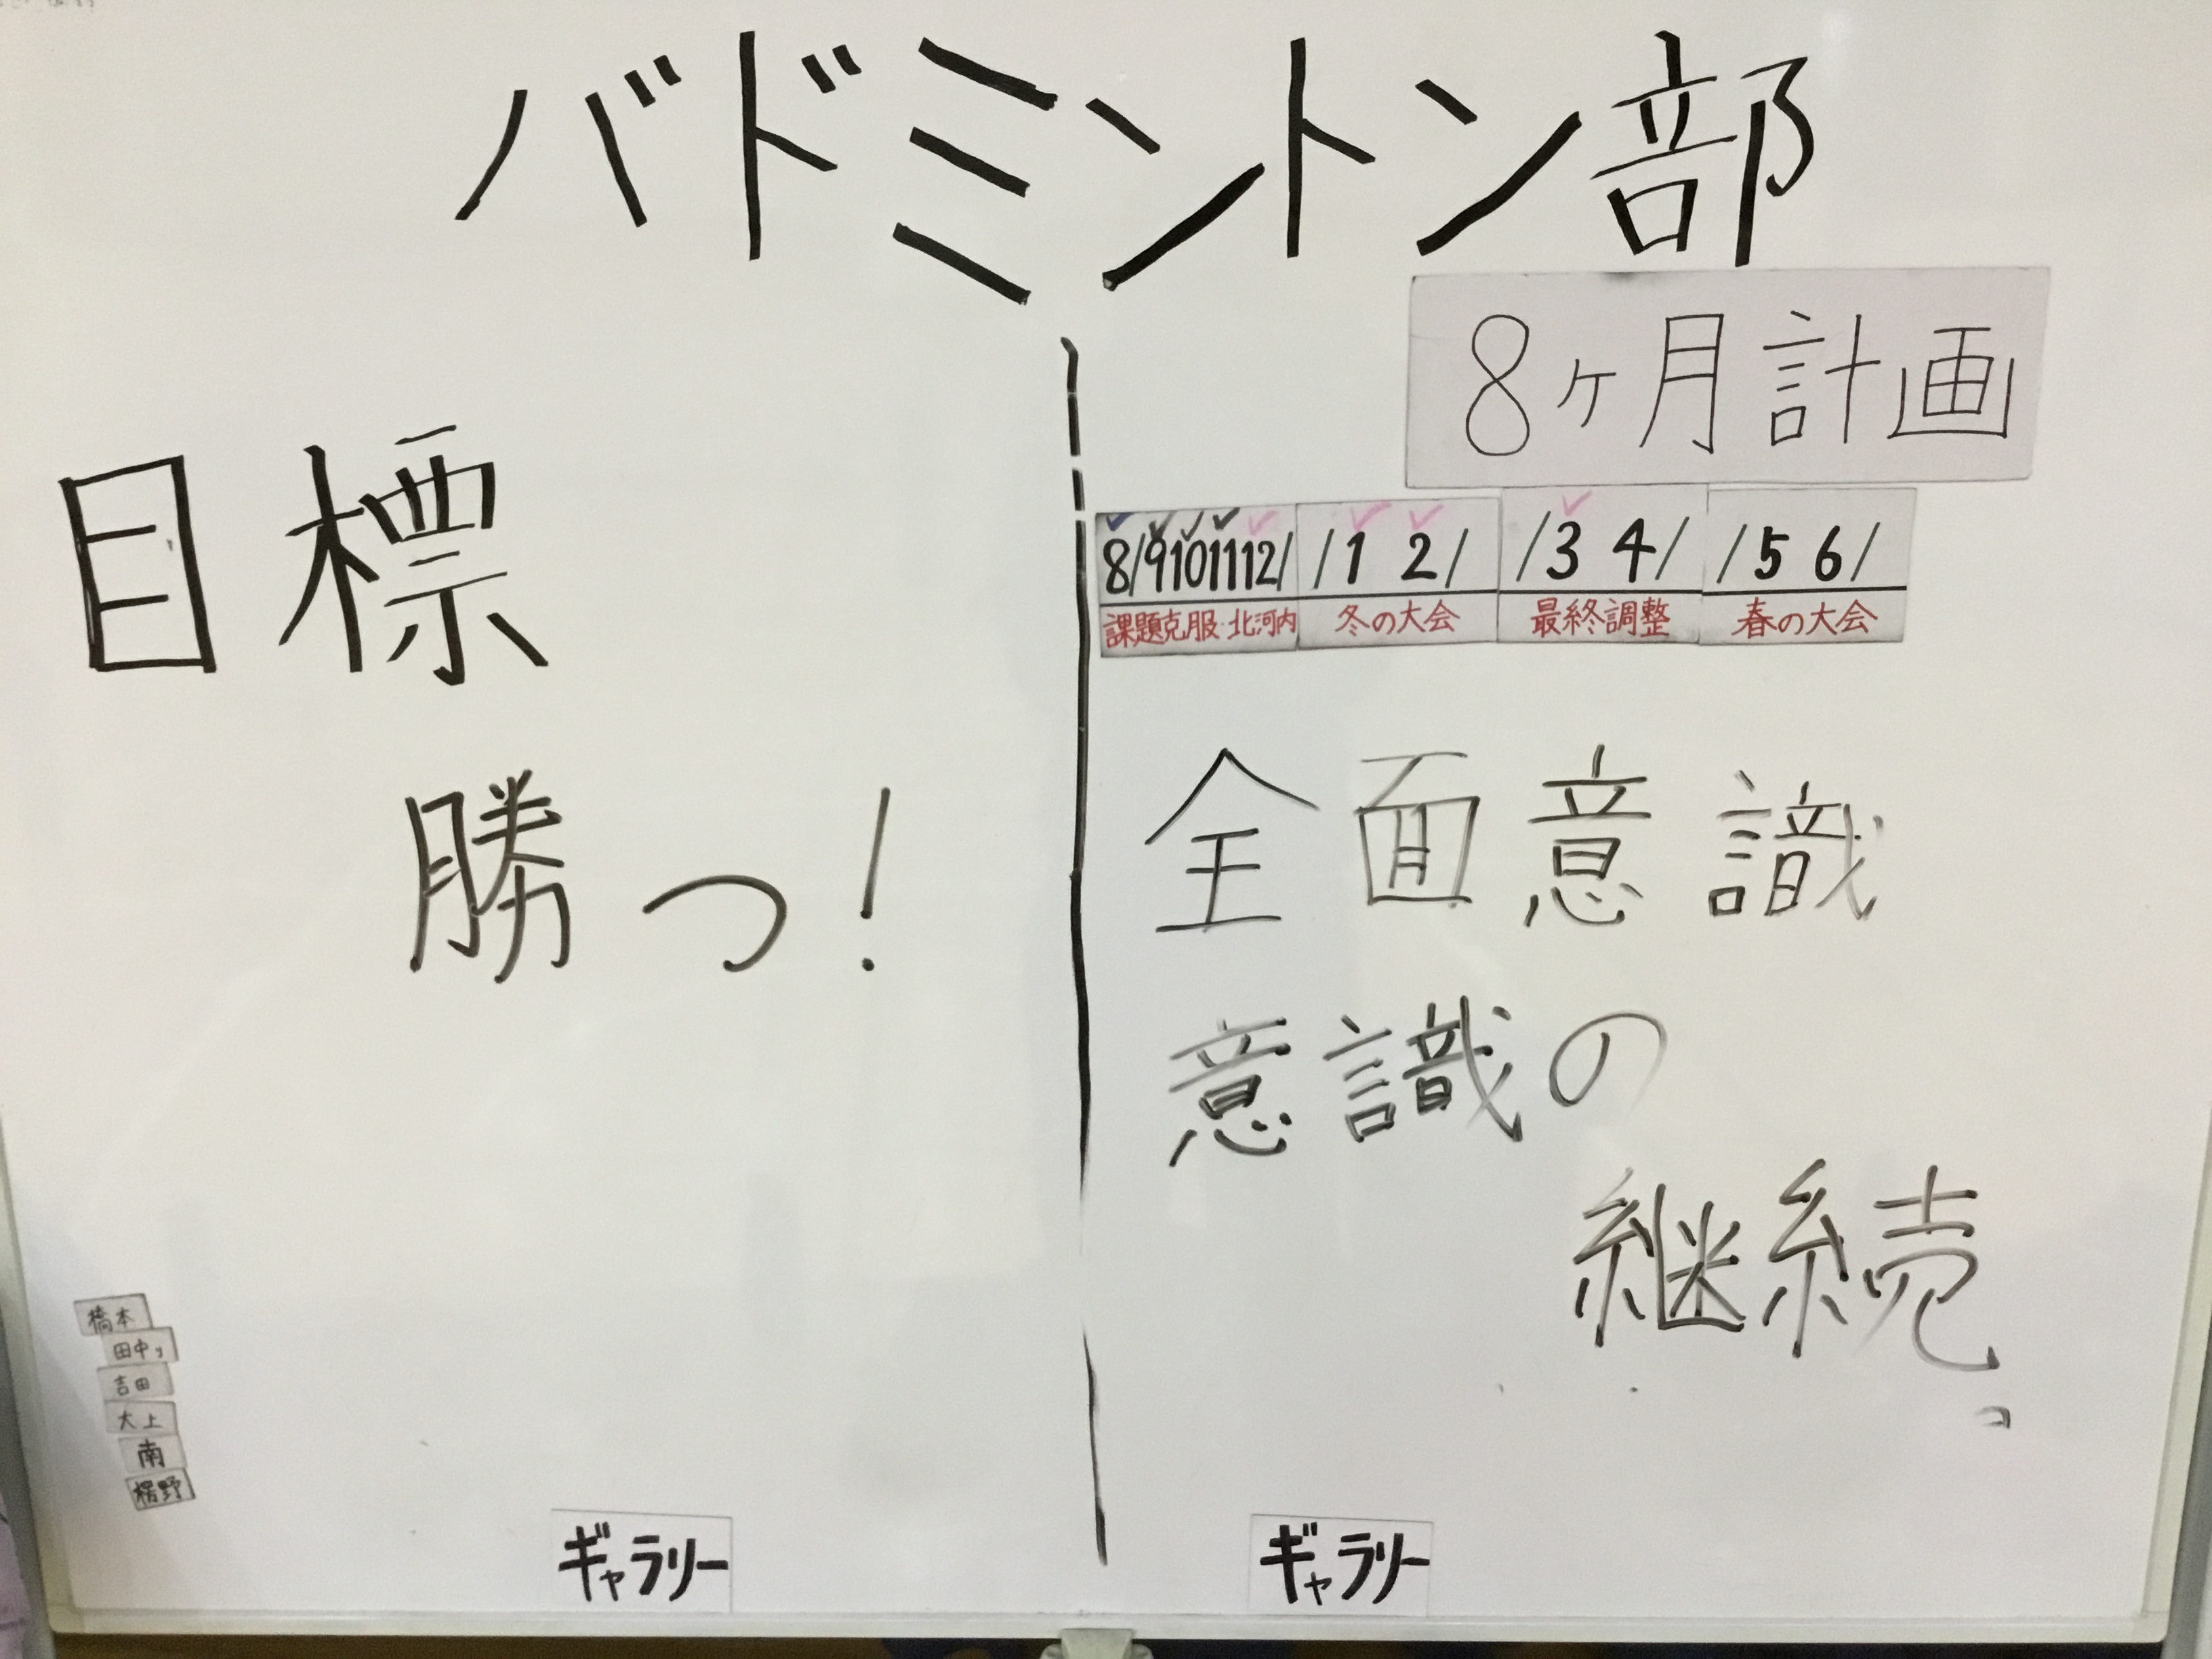 バドミントン部
8ヶ月計画
目標
8/9101112/ /1 2/ /3 4/ /5 6/
課題克服・北河内 冬の大会 最終調整 春の大会
勝つ!
全面意識
意識の
継続。
橋本
田中り
吉田
大上
南
楢野
ギャラリー ギャラリー